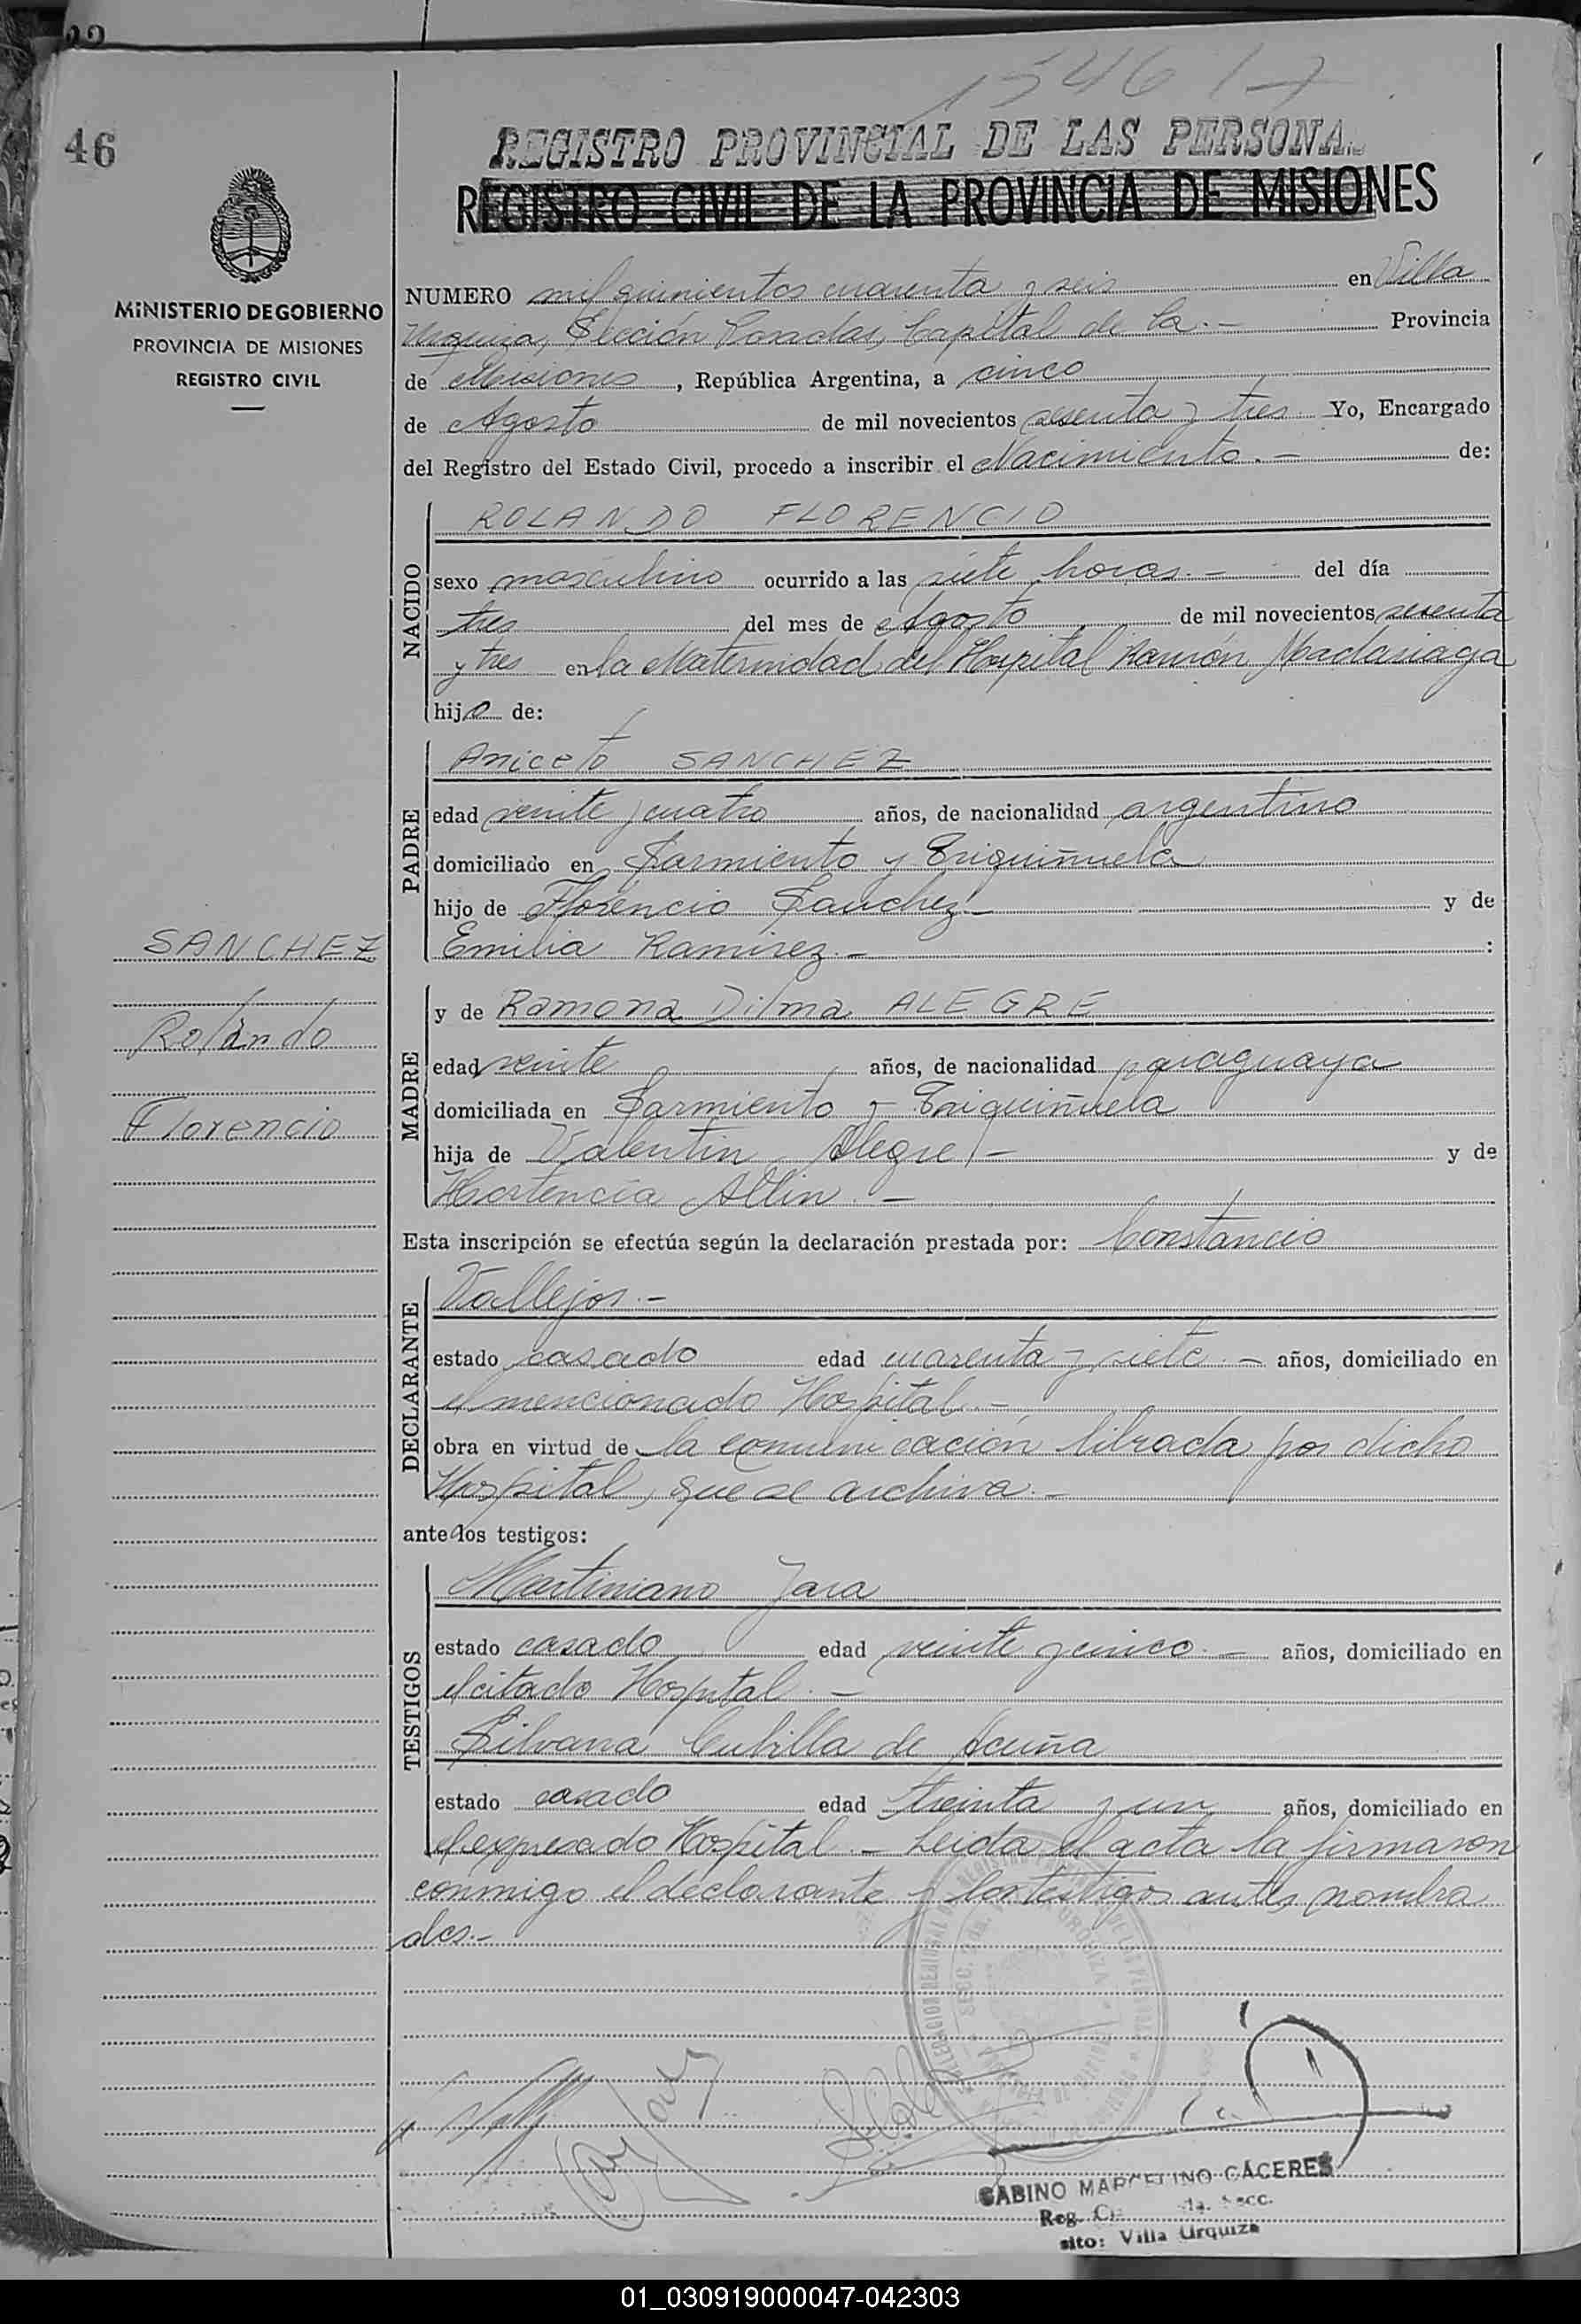 1546/7
46
REGISTRO PROVINCIAL DE LAS PERSONA
REGISTRO CIVIL DE LA PROVINCIA DE MISIONES
MINISTERIO DE GOBIERNO
PROVINCIA DE MISIONES
REGISTRO CIVIL
NUMERO mil quinientos cuarenta y seis en Villa
Urquiza, Sección Posadas, Capital de la.- Provincia
de Misiones, República Argentina, a cinco
de Agosto de mil novecientos sesenta y tres Yo, Encargado
del Registro del Estado Civil, procedo a inscribir el Nacimiento.- de:
NACIDO
ROLANDO FLORENCIO
sexo masculino ocurrido a las siete horas.- del día
tres del mes de Agosto de mil novecientos sesenta
y tres en la Maternidad del Hospital Ramón Madariaga
hijo de:
PADRE
Aniceto SANCHEZ
edad veinte y cuatro años, de nacionalidad argentino
domiciliado en Sarmiento y Triquiñuela
hijo de Florencio Sanchez.- y de
Emilia Ramirez.- :
SANCHEZ
Rolando
Florencio
MADRE
y de Ramona Dilma ALEGRE
edad veinte años, de nacionalidad paraguaya
domiciliada en Sarmiento y Triquiñuela
hija de Valentin Alegre.- y de
Hortencia Allin.-
Esta inscripción se efectúa según la declaración prestada por: Constancio
DECLARANTE
Vallejos.-
estado casado edad cuarenta y siete.- años, domiciliado en
el mencionado Hospital.-
obra en virtud de la comunicación librada por dicho
Hospital, que se archiva.-
ante los testigos:
TESTIGOS
Martiniano Jara
estado casado edad veinte y cinco.- años, domiciliado en
el citado Hospital.-
Silvana Cubilla de Acuña
estado casado edad treinta y un años, domiciliado en
el expresado Hospital.- Leida el acta la firmaron
conmigo el declarante y los testigos antes nombra
dos.-
SABINO MARCELINO CÁCERES
Reg. Secc.
sito: Villa Urquiza
01_030919000047-042303